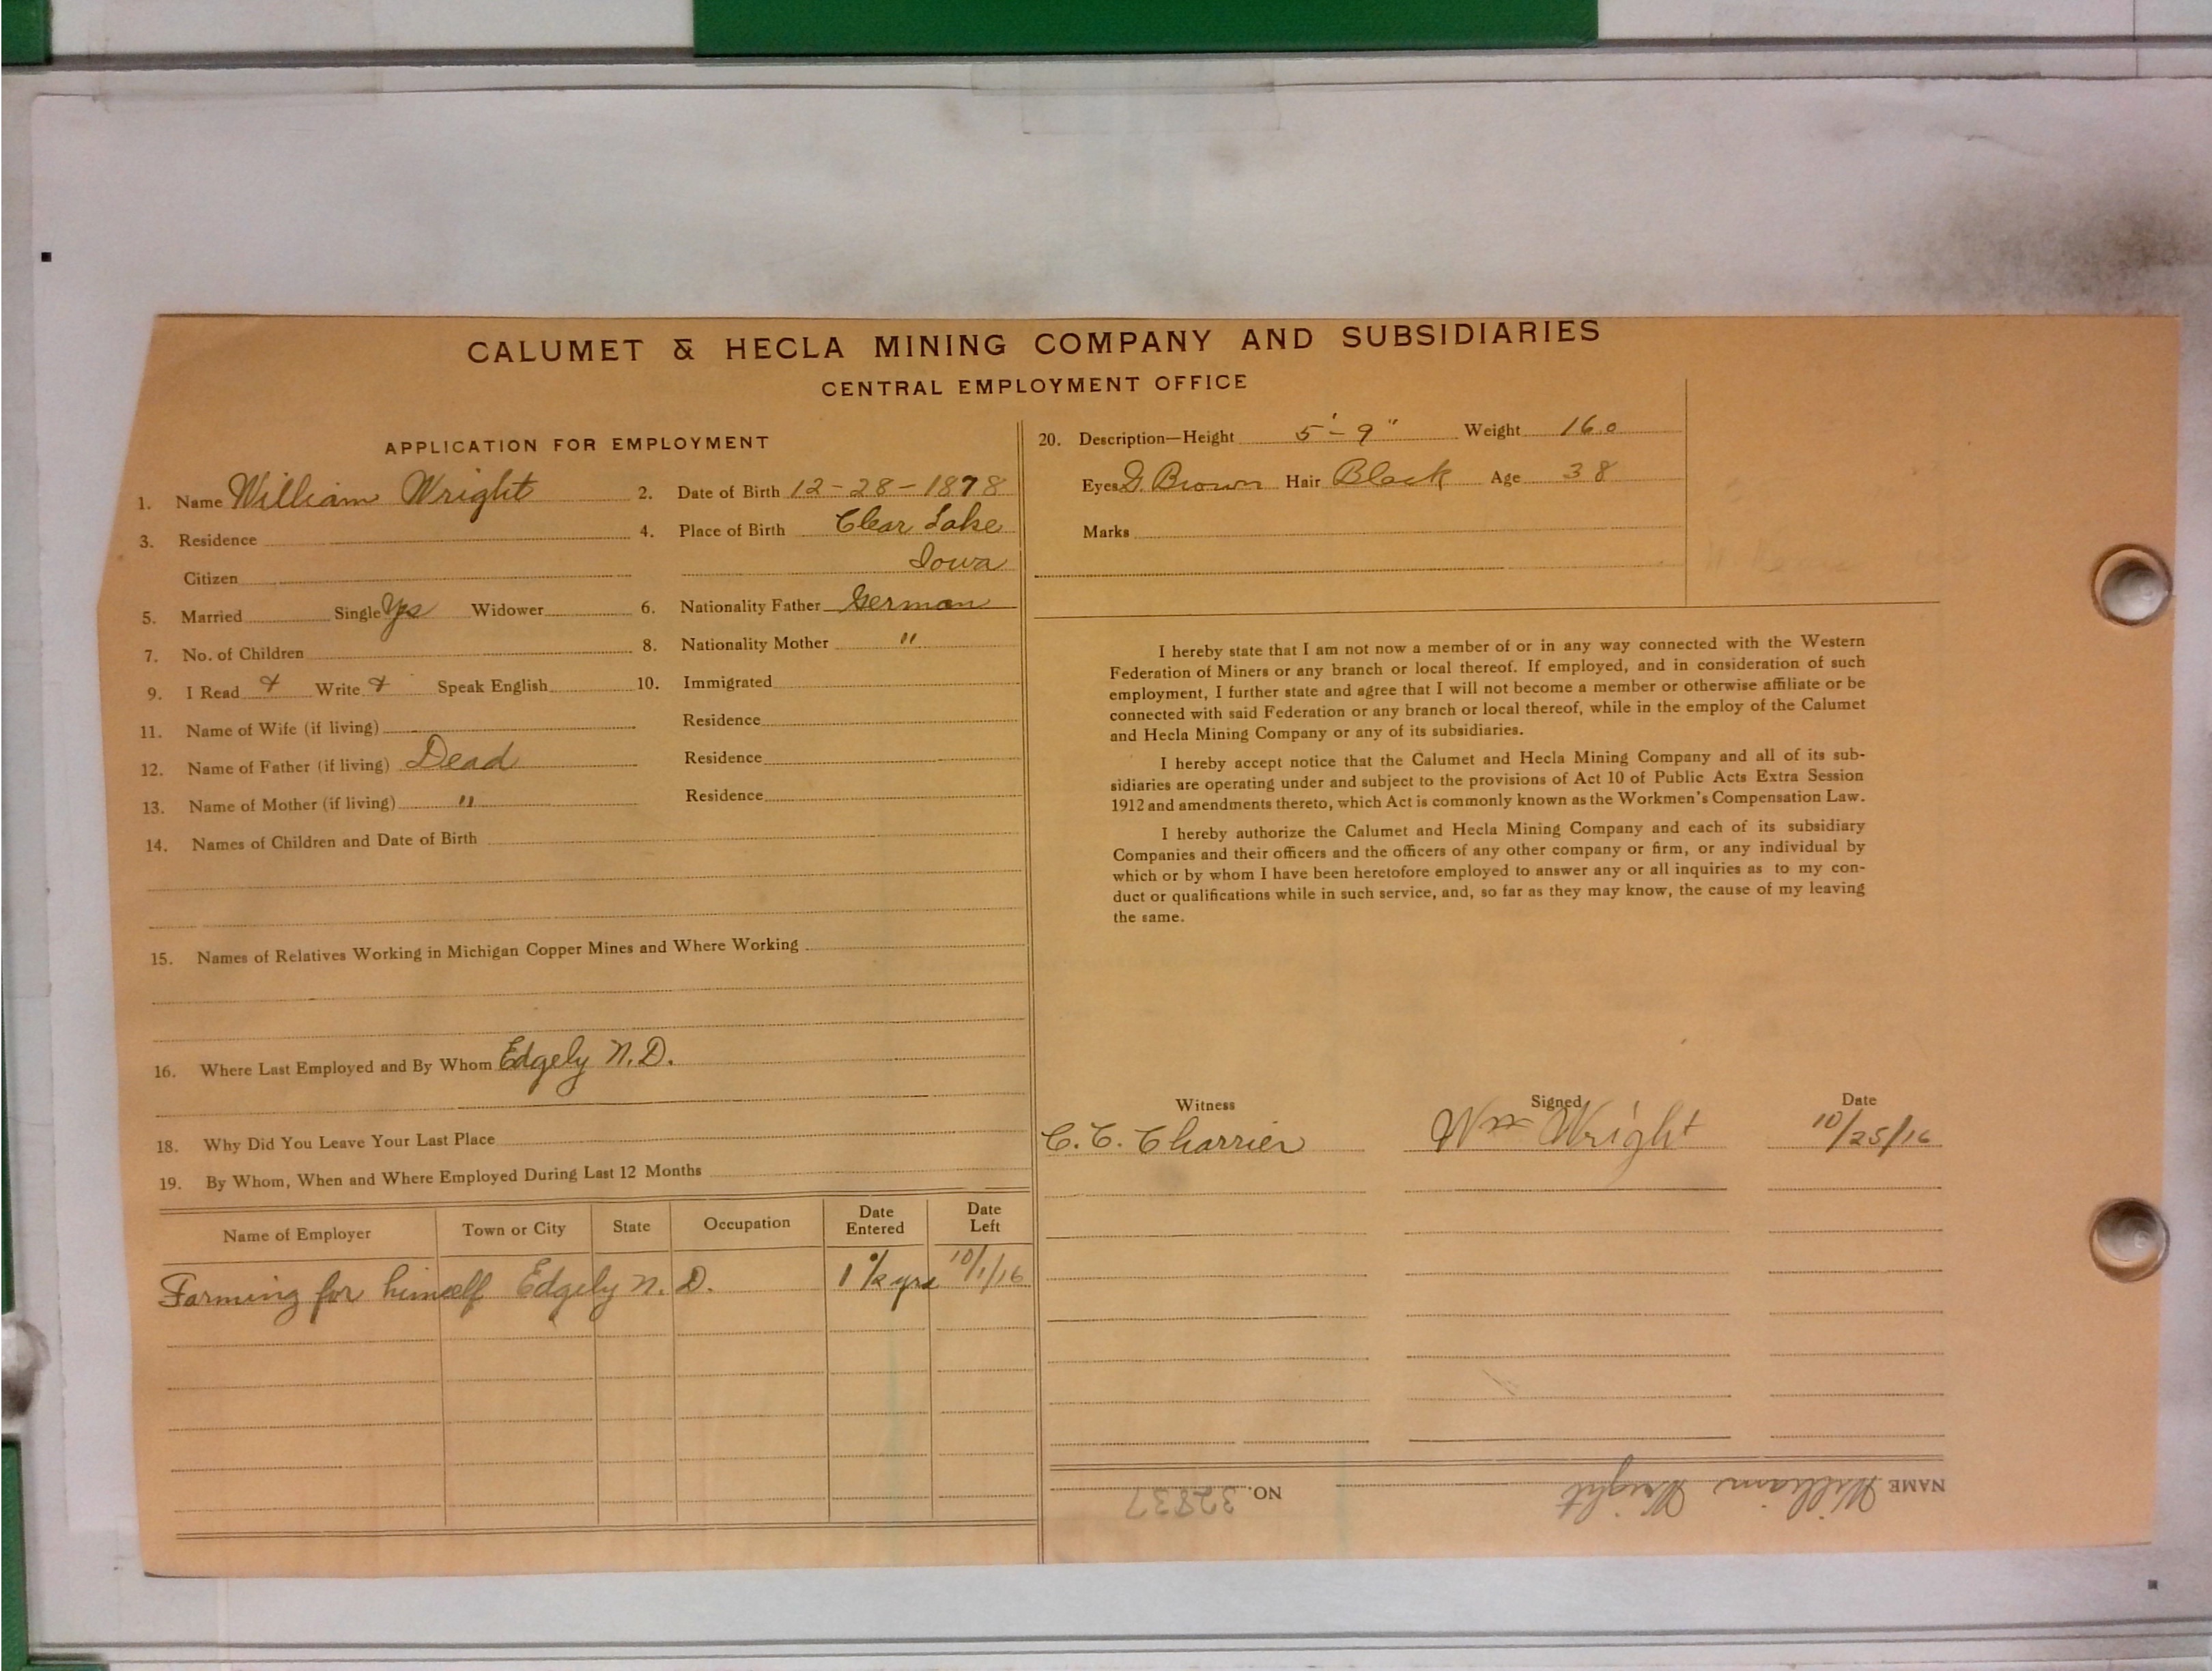 CALUMET & HECLA MINING COMPANY AND SUBSIDIARIES
CENTRAL EMPLOYMENT OFFICE
APPLICATION FOR EMPLOYMENT
1. Name William Wright 2. Date of Birth 12-28-1878
3. Residence 4. Place of Birth Clear Lake
Citizen Iowa
5. Married Single Yes Widower 6. Nationality Father German
7. No. of Children 8. Nationality Mother "
9. I Read + Write + Speak English 10. Immigrated
11. Name of Wife (if living) Residence
12. Name of Father (if living) Dead Residence
13. Name of Mother (if living) " Residence
14. Names of Children and Date of Birth
15. Names of Relatives Working in Michigan Copper Mines and Where Working
16. Where Last Employed and By Whom Edgely N.D.
18. Why Did You Leave Your Last Place
19. By Whom, When and Where Employed During Last 12 Months
Name of Employer Town or City State Occupation Date Entered Date Left
Farming for himself Edgely N.D. 1 1/2 yrs 10/1/16
20. Description—Height 5'-9" Weight 160
Eyes G. Brown Hair Black Age 38
Marks
I hereby state that I am not now a member of or in any way connected with the Western
Federation of Miners or any branch or local thereof. If employed, and in consideration of such
employment, I further state and agree that I will not become a member or otherwise affiliate or be
connected with said Federation or any branch or local thereof, while in the employ of the Calumet
and Hecla Mining Company or any of its subsidiaries.
I hereby accept notice that the Calumet and Hecla Mining Company and all of its sub-
sidiaries are operating under and subject to the provisions of Act 10 of Public Acts Extra Session
1912 and amendments thereto, which Act is commonly known as the Workmen's Compensation Law.
I hereby authorize the Calumet and Hecla Mining Company and each of its subsidiary
Companies and their officers and the officers of any other company or firm, or any individual by
which or by whom I have been heretofore employed to answer any or all inquiries as to my con-
duct or qualifications while in such service, and, so far as they may know, the cause of my leaving
the same.
Witness Signed Date
C. C. Charrier Wm Wright 10/25/16
NAME William Wright NO. 32837